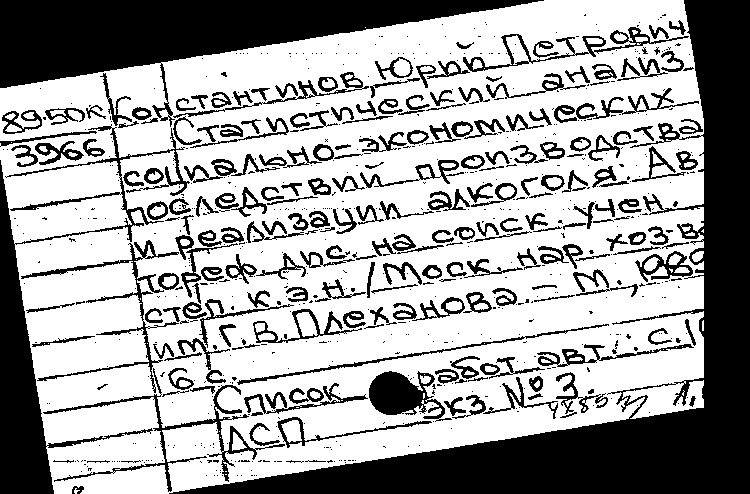 8950к Константинов, Юрий Петрович
3966 Статистический анализ
социально-экономических
последствий производства
и реализации алкоголя. Ав-
тореф. дис. на соиск. учен.
степ. к.э.н. / Моск. нар. хоз-ва
им. Г.В. Плеханова. – М., 1989
16 с.
Список работ авт.: с. 1
Экз. № 3.
ДСП.